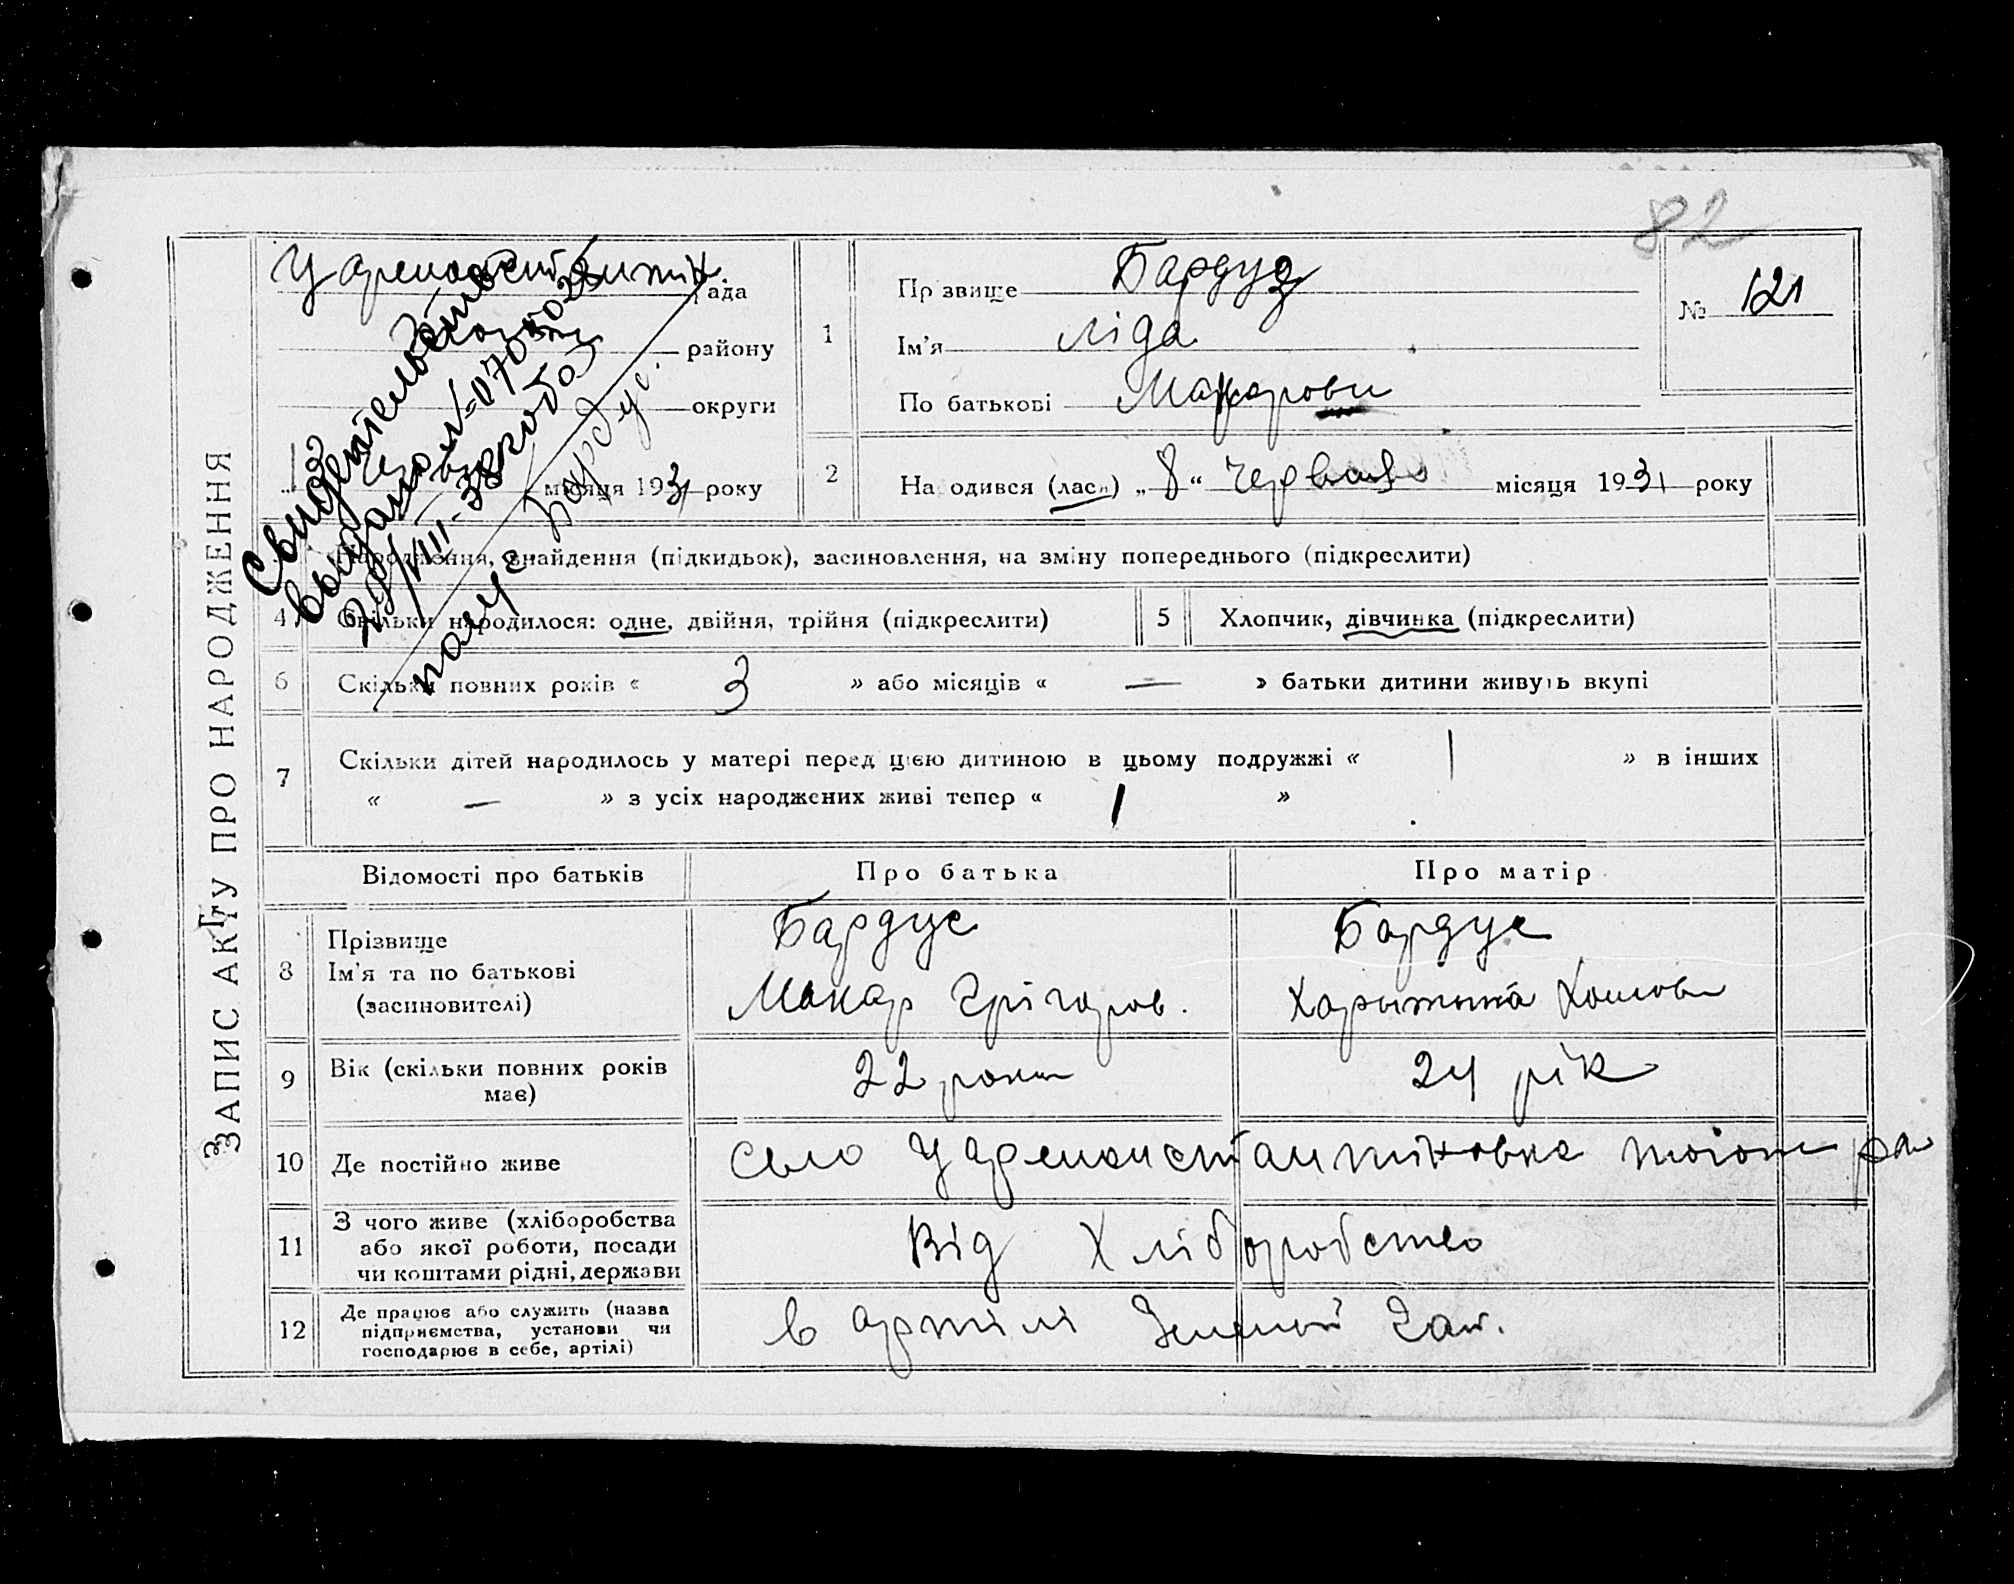 82
ЗАПИС АКТУ ПРО НАРОДЖЕННЯ
рада
району
округи
місяця 1931 року
Свидетельство
выдано
28/VIII-38 года
Бардус.
1
Прізвище Бардус
Ім'я Ліда
По батькові Макарови
№ 121
2
Народився (лася) „8“ Червня місяця 1931 року
народження, знайдення (підкидьок), засиновлення, на зміну попереднього (підкреслити)
4 Скільки народилося: одне, двійня, трійня (підкреслити)
5 Хлопчик, дівчинка (підкреслити)
6 Скільки повних років « 3 » або місяців « — » батьки дитини живуть вкупі
7 Скільки дітей народилось у матері перед цією дитиною в цьому подружжі « 1 » в інших
« — » з усіх народжених живі тепер « 1 »
Відомості про батьків Про батька Про матір
8 Прізвище Бардус Бардус
Ім'я та по батькові Макар Грігоров.
(засиновителі)
9 Вік (скільки повних років має) 22 роки 24 рік
10 Де постійно живе село
11 З чого живе (хліборобства або якої роботи, посади чи коштами рідні, держави Від Хліборобство
12 Де працює або служить (назва підприємства, установи чи господарює в себе, артілі) в артілі Зелений Гай.